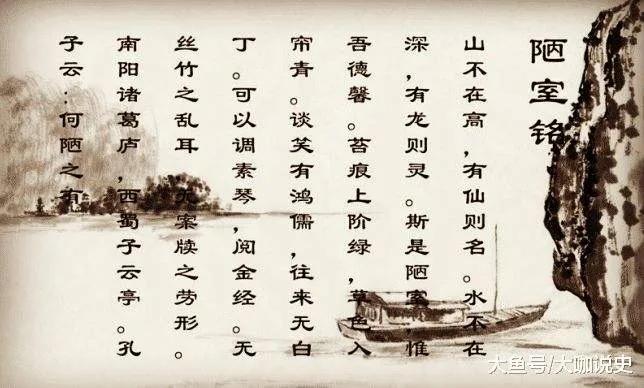 陋室铭
山不在高，有仙则名。水不在
深，有龙则灵。斯是陋室，惟
吾德馨。苔痕上阶绿，草色入
帘青。谈笑有鸿儒，往来无白
丁。可以调素琴，阅金经。无
丝竹之乱耳，无案牍之劳形。
南阳诸葛庐，西蜀子云亭。孔
子云：何陋之有
大鱼号/大咖说史